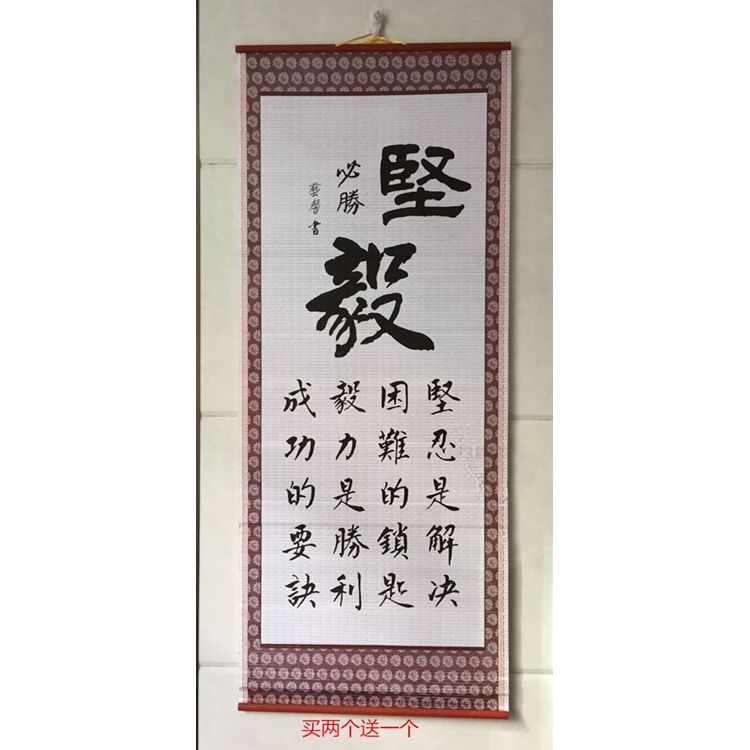 堅毅
必勝
書
堅忍是解决
困難的鎖匙
毅力是勝利
成功的要訣
买两个送一个